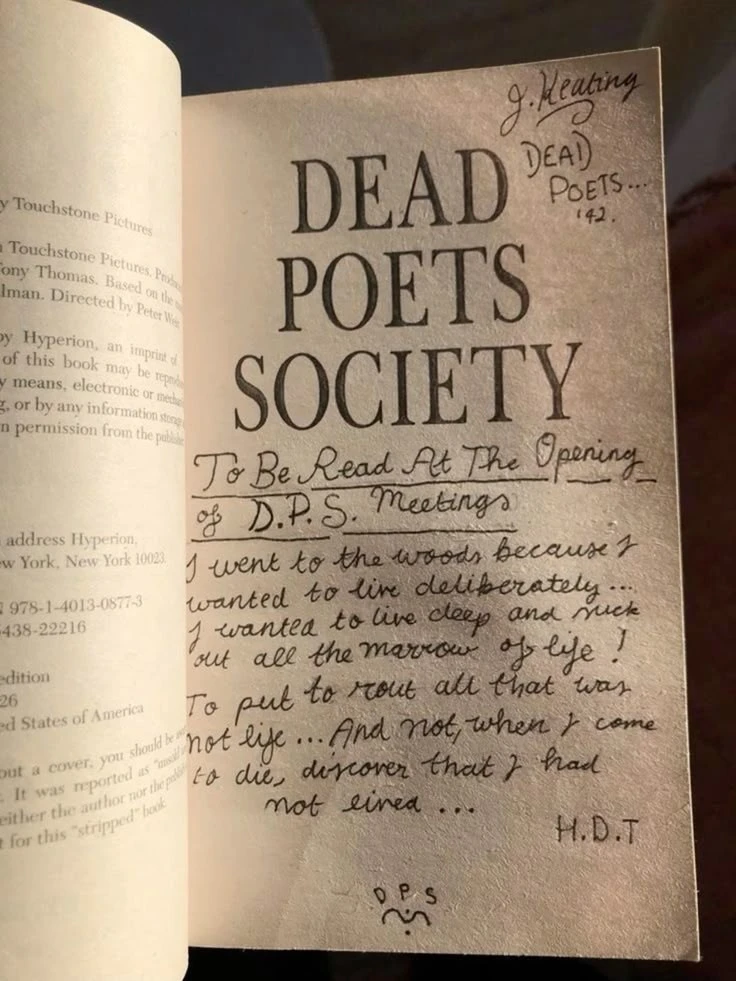 y Touchstone Pictures
Touchstone Pictures. Produ
ony Thomas. Based on the
lman. Directed by Peter Weir
by Hyperion, an imprint of
of this book may be reprodu
y means, electronic or mecha
g, or by any information storage
n permission from the publishe
address Hyperion,
ew York, New York 10023.
978-1-4013-0877-3
438-22216
edition
26
ed States of America
out a cover, you should be
. It was reported as "unsold
either the author nor the publis
t for this "stripped" book.
J. Keating
DEAD
POETS...
'42.
DEAD
POETS
SOCIETY
To Be Read At The Opening
of D.P.S. Meetings
I went to the woods because I
wanted to live deliberately...
I wanted to live deep and suck
out all the marrow of life!
To put to rout all that was
not life... And not, when I come
to die, discover that I had
not lived...
H.D.T
D P S